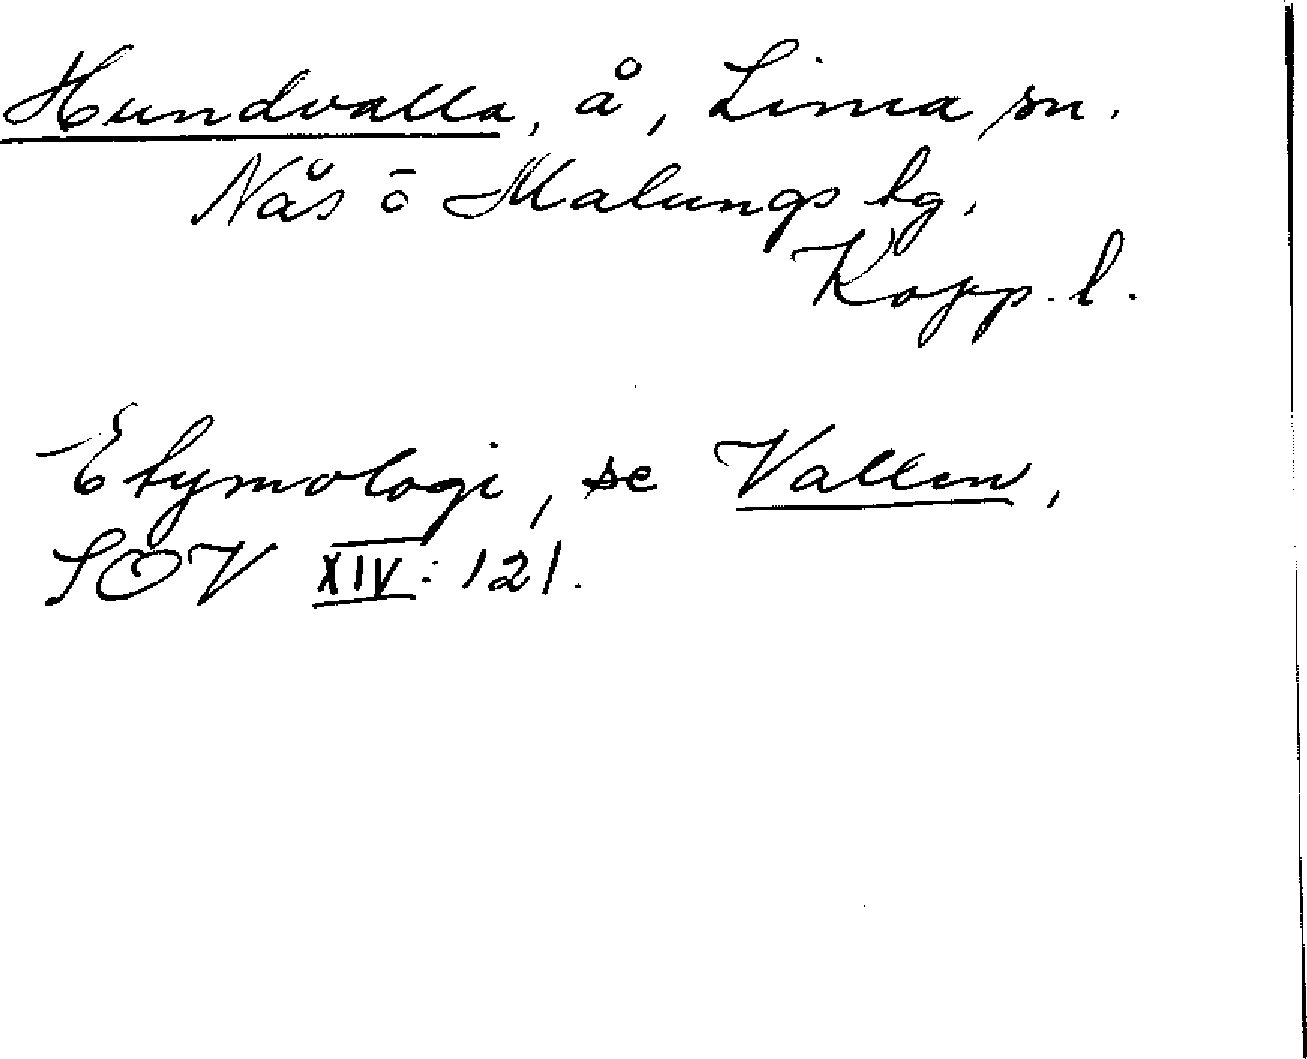 Hundvalla, å, Lima sn.
Nås o Malungs hg.
Kopp. l.
Etymologi, se Vallen,
SOV XIV: 121.